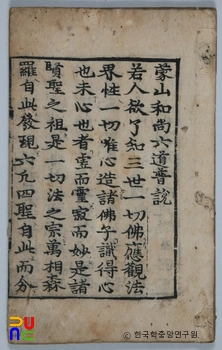 蒙山和尚六道普說
若人欲了知三世一切佛應觀法
界性一切唯心造諸佛子識得心
也未心也者虛而靈寂而妙是諸
賢聖之祖是一切法之宗萬相森
羅自此發現六凡四聖自此而分
한국학중앙연구원